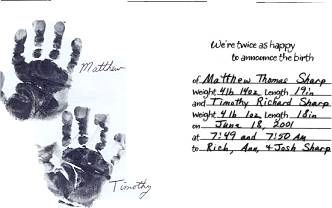 Matthew
Timothy
We're twice as happy
to announce the birth
of Matthew Thomas Sharp
Weight 4lb 14oz Length 19in
and Timothy Richard Sharp
Weight 4lb 1oz Length 18in
on June 18, 2001
at 7:49 and 7:50 AM
to Rich, Ann, & Josh Sharp